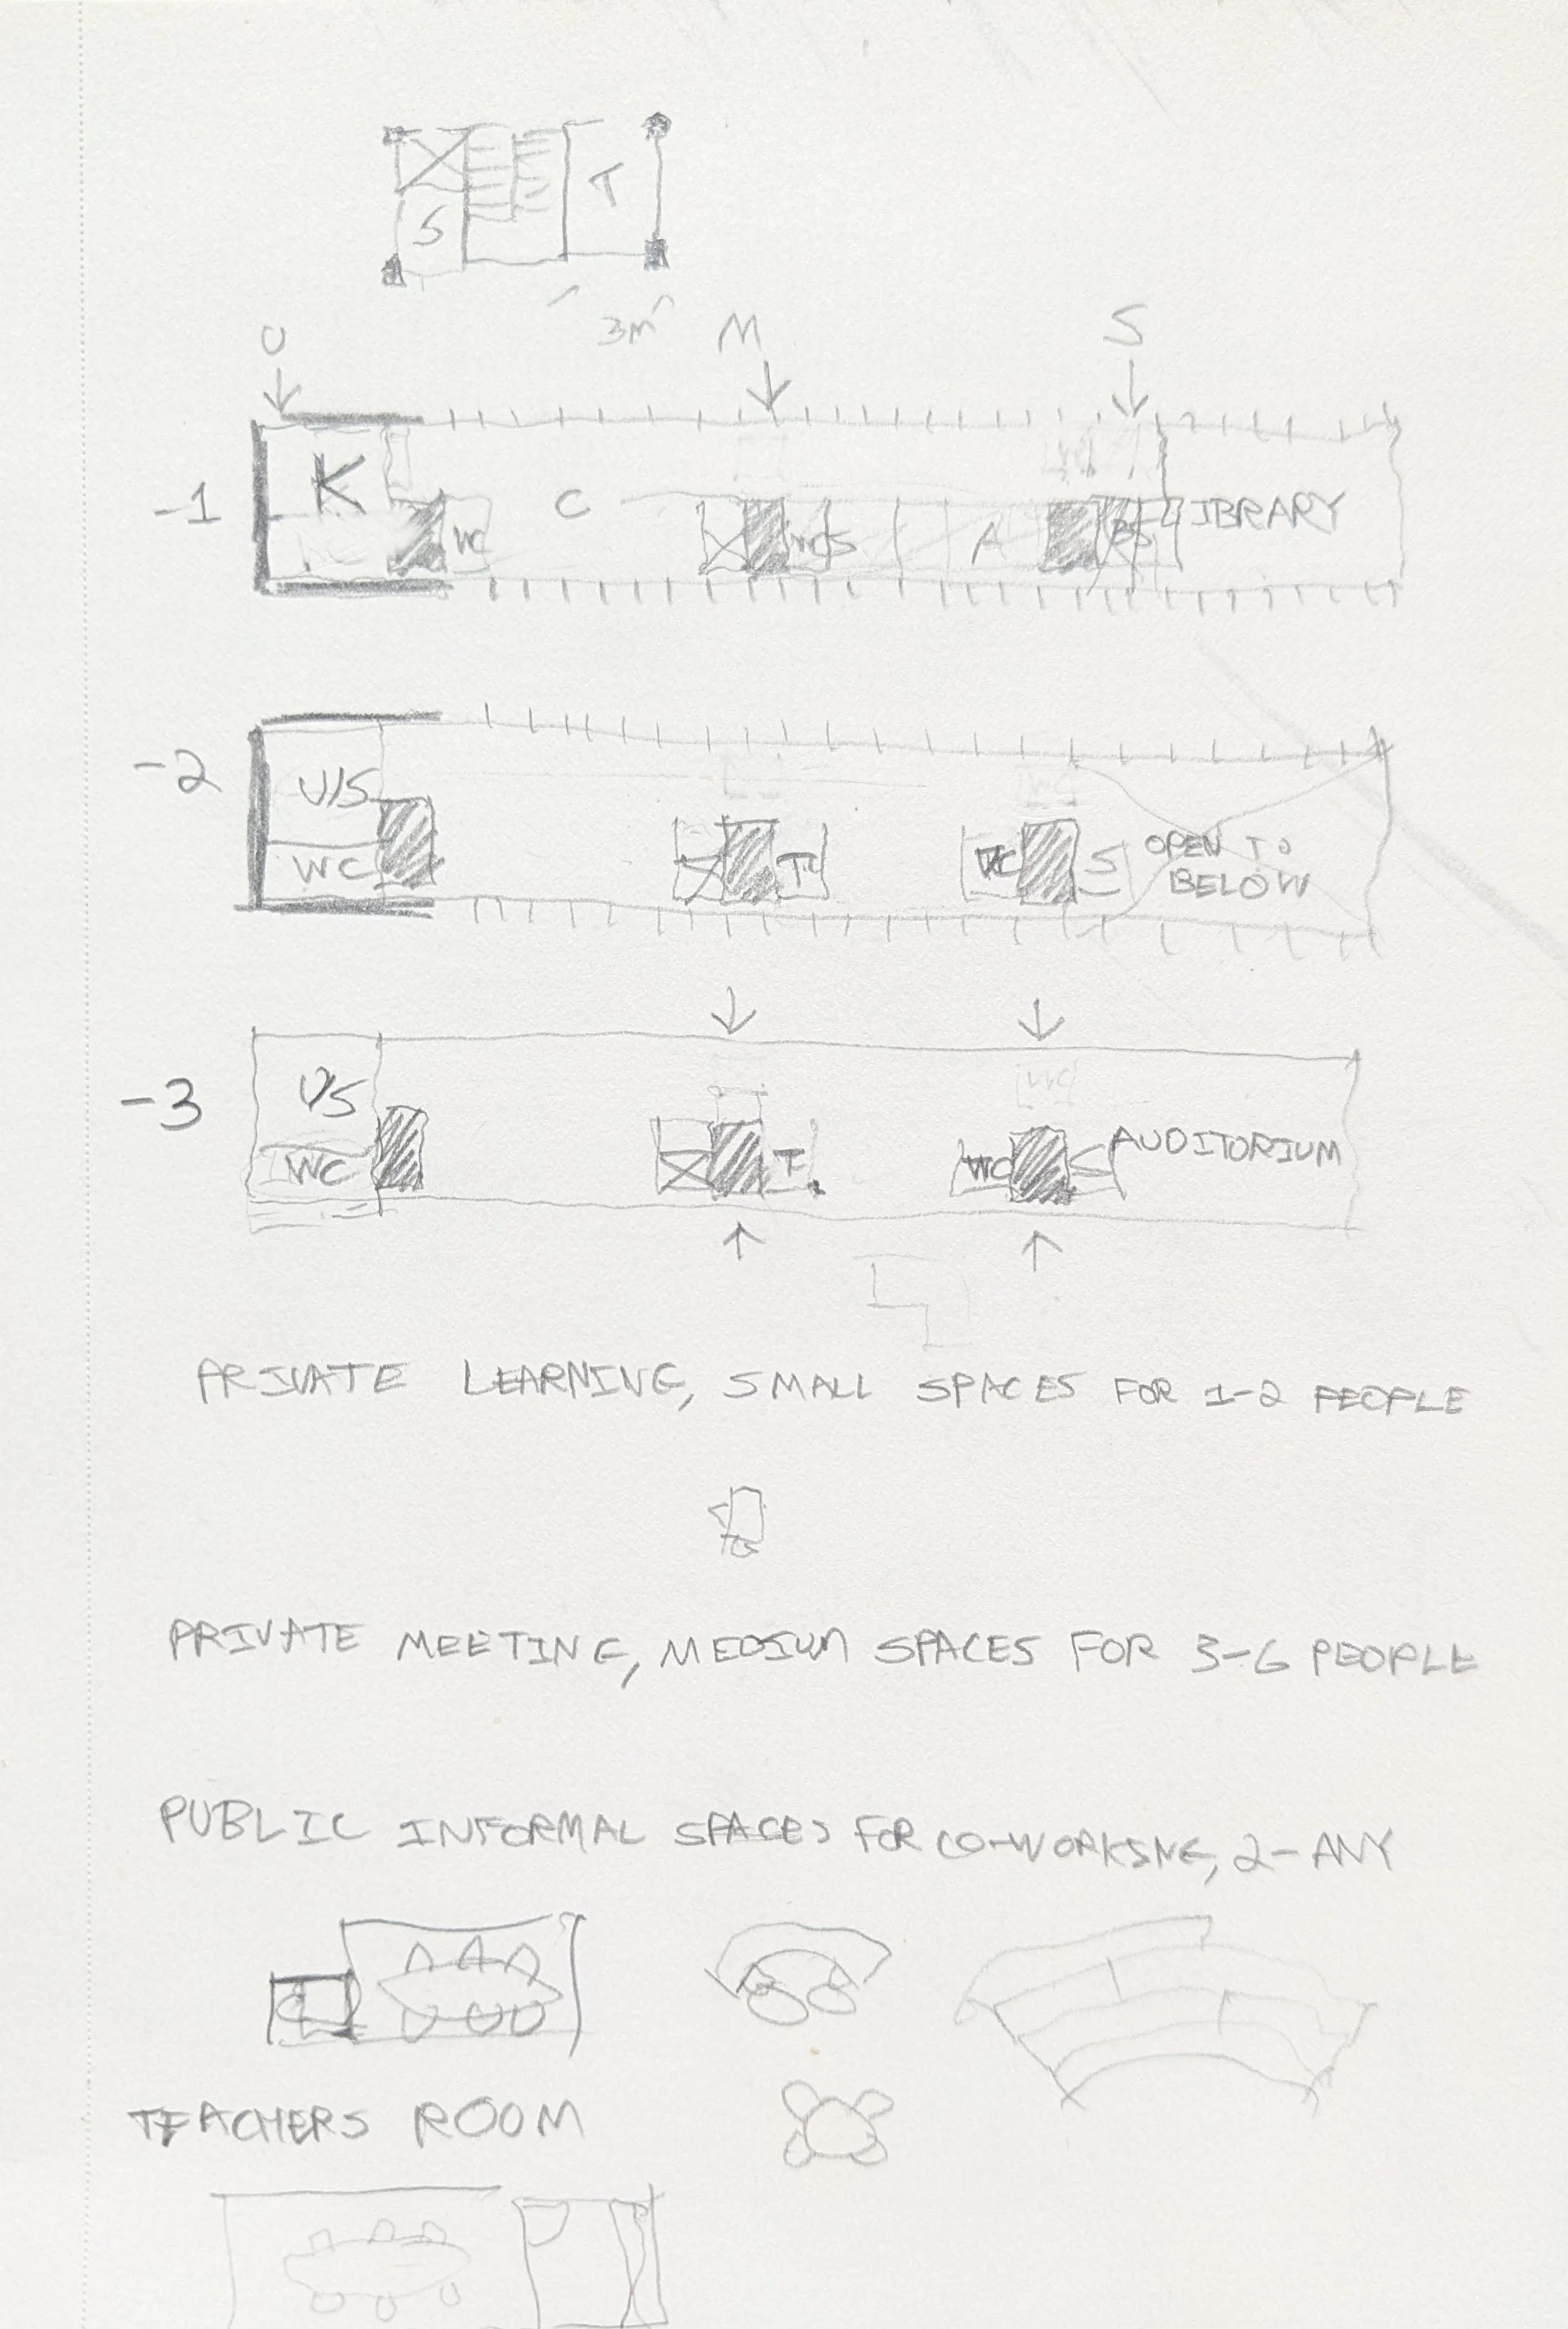 T
S
3m
U M S
-1
K WC C A LIBRARY
-2
U/S
WC T WC S OPEN TO
BELOW
-3
U/S
WC T WC S AUDITORIUM
PRIVATE LEARNING, SMALL SPACES FOR 1-2 PEOPLE
PRIVATE MEETING, MEDIUM SPACES FOR 3-6 PEOPLE
PUBLIC INFORMAL SPACES FOR CO-WORKING, 2-ANY
TEACHERS ROOM